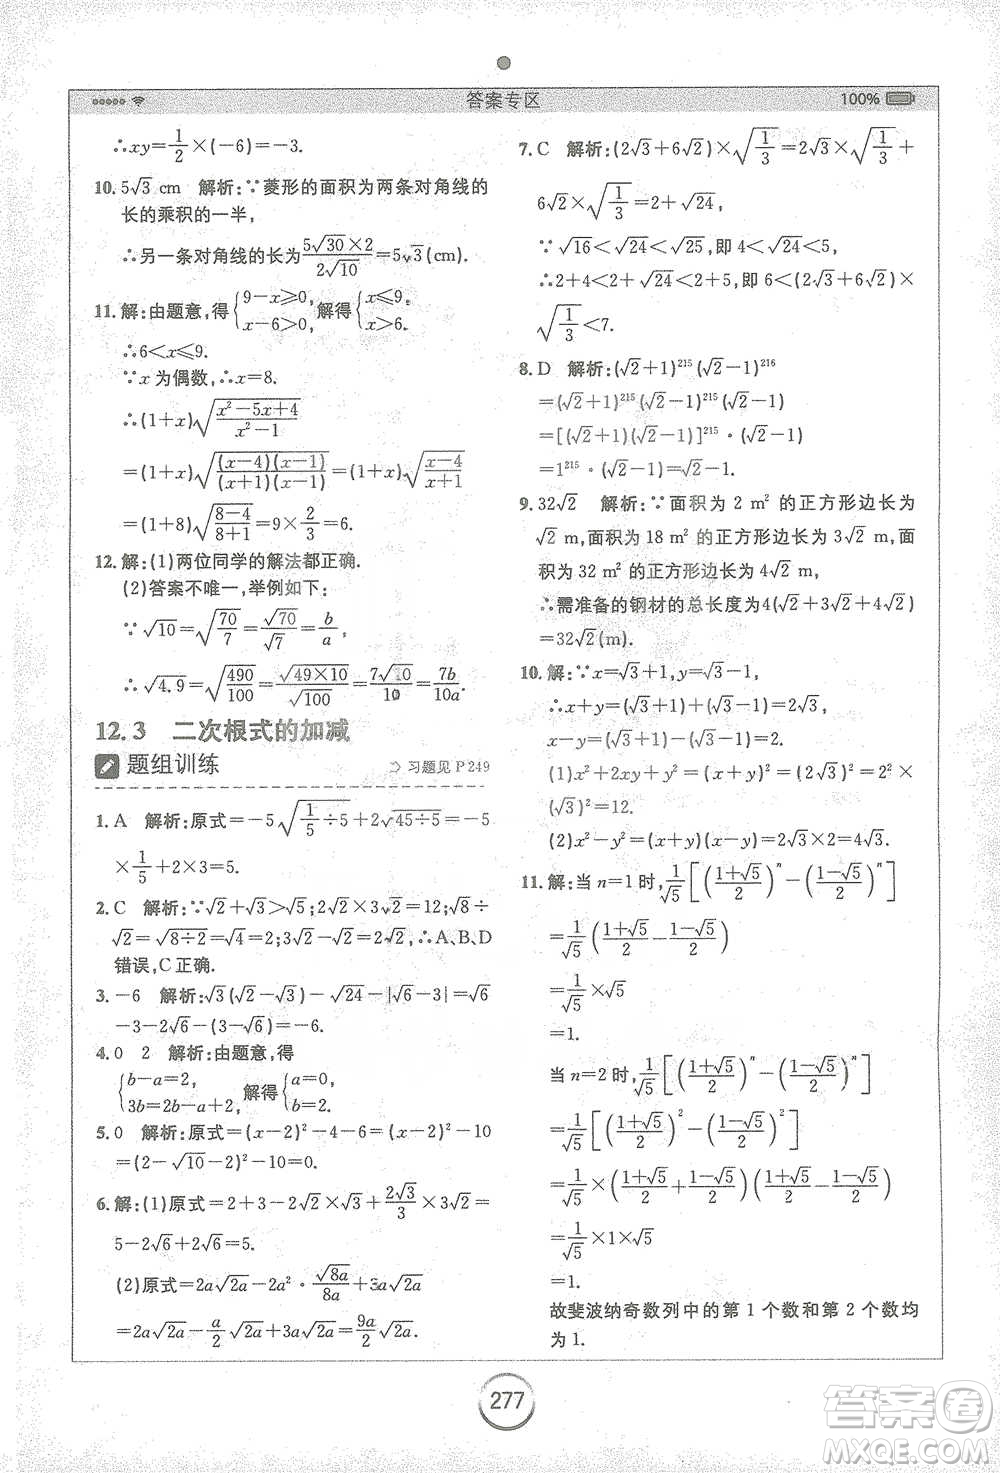 答案专区
100%
∴xy=1/2×(−6)=−3.
10. 5√3 cm 解析:∵菱形的面积为两条对角线的
长的乘积的一半,
∴另一条对角线的长为(5√30×2)/(2√10)=5√3(cm).
11. 解:由题意,得{9−x≥0, x−6>0, 解得{x≤9, x>6.
∴6<x≤9.
∵x 为偶数,∴x=8.
∴(1+x)√((x²−5x+4)/(x²−1))
=(1+x)√((x−4)(x−1)/((x+1)(x−1)))=(1+x)√((x−4)/(x+1))
=(1+8)√((8−4)/(8+1))=9×2/3=6.
12. 解:(1)两位同学的解法都正确.
(2)答案不唯一,举例如下:
∵√10=√(70/7)=√70/√7=b/a,
∴√4.9=√(490/100)=√(49×10)/√100=7√10/10=7b/10a.
12.3 二次根式的加减
题组训练 习题见 P249
1. A 解析:原式=−5√(1/5÷5)+2√(45÷5)=−5
×1/5+2×3=5.
2. C 解析:∵√2+√3>√5;2√2×3√2=12;√8÷
√2=√(8÷2)=√4=2;3√2−√2=2√2,∴A、B、D
错误,C 正确.
3. −6 解析:√3(√2−√3)−√24−|√6−3|=√6
−3−2√6−(3−√6)=−6.
4. 0 2 解析:由题意,得
{b−a=2, 3b=2b−a+2, 解得{a=0, b=2.
5. 0 解析:原式=(x−2)²−4−6=(x−2)²−10
=(2−√10−2)²−10=0.
6. 解:(1)原式=2+3−2√2×√3+2√3/3×3√2=
5−2√6+2√6=5.
(2)原式=2a√2a−2a²·√8a/8a+3a√2a
=2a√2a−a/2√2a+3a√2a=9a/2√2a.
7. C 解析:(2√3+6√2)×√(1/3)=2√3×√(1/3)+
6√2×√(1/3)=2+√24,
∵√16<√24<√25,即 4<√24<5,
∴2+4<2+√24<2+5,即 6<(2√3+6√2)×
√(1/3)<7.
8. D 解析:(√2+1)²¹⁵(√2−1)²¹⁶
=(√2+1)²¹⁵(√2−1)²¹⁵(√2−1)
=[(√2+1)(√2−1)]²¹⁵·(√2−1)
=1²¹⁵·(√2−1)=√2−1.
9. 32√2 解析:∵面积为 2 m² 的正方形边长为
√2 m,面积为 18 m² 的正方形边长为 3√2 m,
面积为 32 m² 的正方形边长为 4√2 m,
∴需准备的钢材的总长度为 4(√2+3√2+4√2)
=32√2(m).
10. 解:∵x=√3+1,y=√3−1,
∴x+y=(√3+1)+(√3−1)=2√3,
x−y=(√3+1)−(√3−1)=2.
(1)x²+2xy+y²=(x+y)²=(2√3)²=2²×
(√3)²=12.
(2)x²−y²=(x+y)(x−y)=2√3×2=4√3.
11. 解:当 n=1 时,1/√5[((1+√5)/2)ⁿ−((1−√5)/2)ⁿ]
=1/√5((1+√5)/2−(1−√5)/2)
=1/√5×√5
=1.
当 n=2 时,1/√5[((1+√5)/2)ⁿ−((1−√5)/2)ⁿ]
=1/√5[((1+√5)/2)²−((1−√5)/2)²]
=1/√5×((1+√5)/2+(1−√5)/2)((1+√5)/2−(1−√5)/2)
=1/√5×1×√5
=1.
故斐波纳奇数列中的第 1 个数和第 2 个数均
为 1.
277
答案圈
MXQE.COM